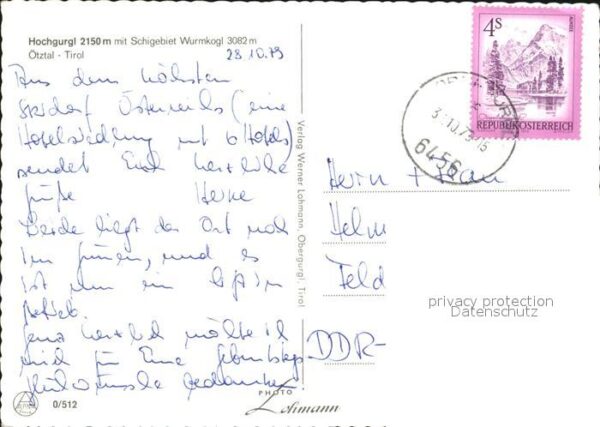 Hochgurgl 2150 m mit Schigebiet Wurmkogl 3082 m
Ötztal - Tirol
28.10.79
Aus dem höchsten
Skidorf Österreichs (eine
Hotelsiedlung mit 6 Hotels)
sendet Euch herzliche
Grüße
Leider liegt der Ort noch
im grünen, und es
ist nur ein Lift in
Betrieb.
Ganz herzlich möchte ich
mich für Eure Geburtstags-
Glückwünsche bedanken.
0/512
PHOTO
Lohmann
Verlag Werner Lohmann, Obergurgl, Tirol
4S
REPUBLIK ÖSTERREICH
6456
Herrn + Frau
Helm
Feld
DDR-
privacy protection
Datenschutz